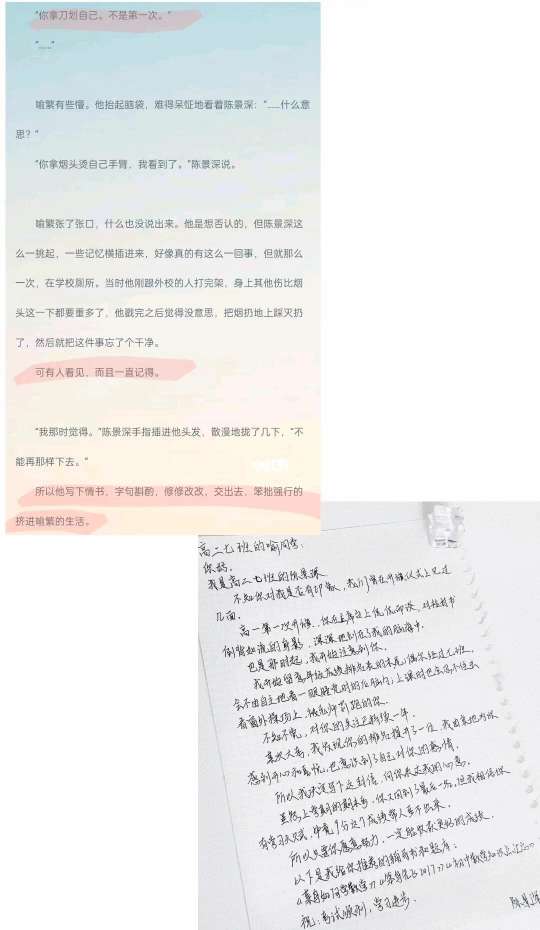 “你拿刀划自己，不是第一次。”
“……”
喻繁有些懵。他抬起脑袋，难得呆怔地看着陈景深：“……什么意
思？”
“你拿烟头烫自己手臂，我看到了。”陈景深说。
喻繁张了张口，什么也没说出来。他是想否认的，但陈景深这
么一挑起，一些记忆横插进来，好像真的有这么一回事，但就那么
一次，在学校厕所。当时他刚跟外校的人打完架，身上其他伤比烟
头这一下都要重多了，他戳完之后觉得没意思，把烟扔地上踩灭扔
了，然后就把这件事忘了个干净。
可有人看见，而且一直记得。
“我那时觉得。”陈景深手指插进他头发，散漫地拢了几下，“不
能再那样下去。”
所以他写下情书，字句斟酌，修修改改，交出去，笨拙强行的
挤进喻繁的生活。
高二七班的喻同学：
你好。
我是高二七班的陈景深
不知你对我是否有印象，我们曾在开学仪式上见过
几面。
高一第一次升旗，你在主席台上侃侃而谈，对检讨书
倒背如流的身影，深深地刻在了我的脑海中。
也是那时起，我开始注意到你。
我开始留意年级成绩排名表的末尾；偶尔经过七班，
会不由自主地看一眼睡觉时的后脑勺；上课时也会忍不住去
看窗外操场上，被老师罚跑的你。
不知不觉，对你的关注已持续一年。
某次大考，我发现你的排名提升了一位，我由衷地为你
感到开心和喜悦，也意识到了自己对你的感情。
所以我决定写下这封信，向你表达我的心意。
虽然上学期的期末考，你又回到了最后一名，但我相信你
有学习天赋，毕竟9分这个成绩常人考不出来。
所以只要你愿意努力，一定能收获更好的成绩。
以下是我给你推荐的辅导书和题库：
祝：考试顺利，学习进步。
陈景深